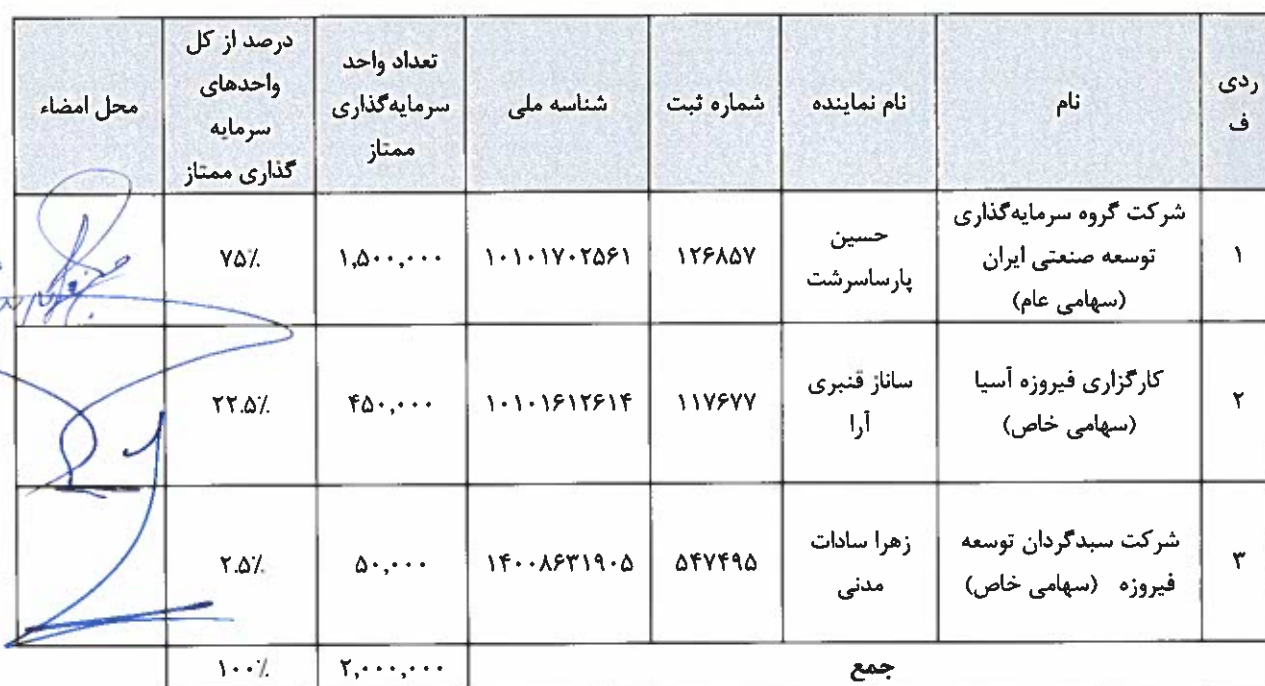 ردی
ف
نام
نام نماینده
شماره ثبت
شناسه ملی
تعداد واحد
سرمایه‌گذاری
ممتاز
درصد از کل
واحدهای
سرمایه
گذاری ممتاز
محل امضاء
۱
شرکت گروه سرمایه‌گذاری
توسعه صنعتی ایران
(سهامی عام)
حسین
پارساسرشت
۱۲۶۸۵۷
۱۰۱۰۱۷۰۲۵۶۱
۱,۵۰۰,۰۰۰
۷۵٪
۲
کارگزاری فیروزه آسیا
(سهامی خاص)
ساناز قنبری
آرا
۱۱۷۶۷۷
۱۰۱۰۱۶۱۲۶۱۴
۴۵۰,۰۰۰
۲۲.۵٪
۳
شرکت سبدگردان توسعه
فیروزه (سهامی خاص)
زهرا سادات
مدنی
۵۴۷۴۹۵
۱۴۰۰۸۶۳۱۹۰۵
۵۰,۰۰۰
۲.۵٪
جمع
۲,۰۰۰,۰۰۰
۱۰۰٪